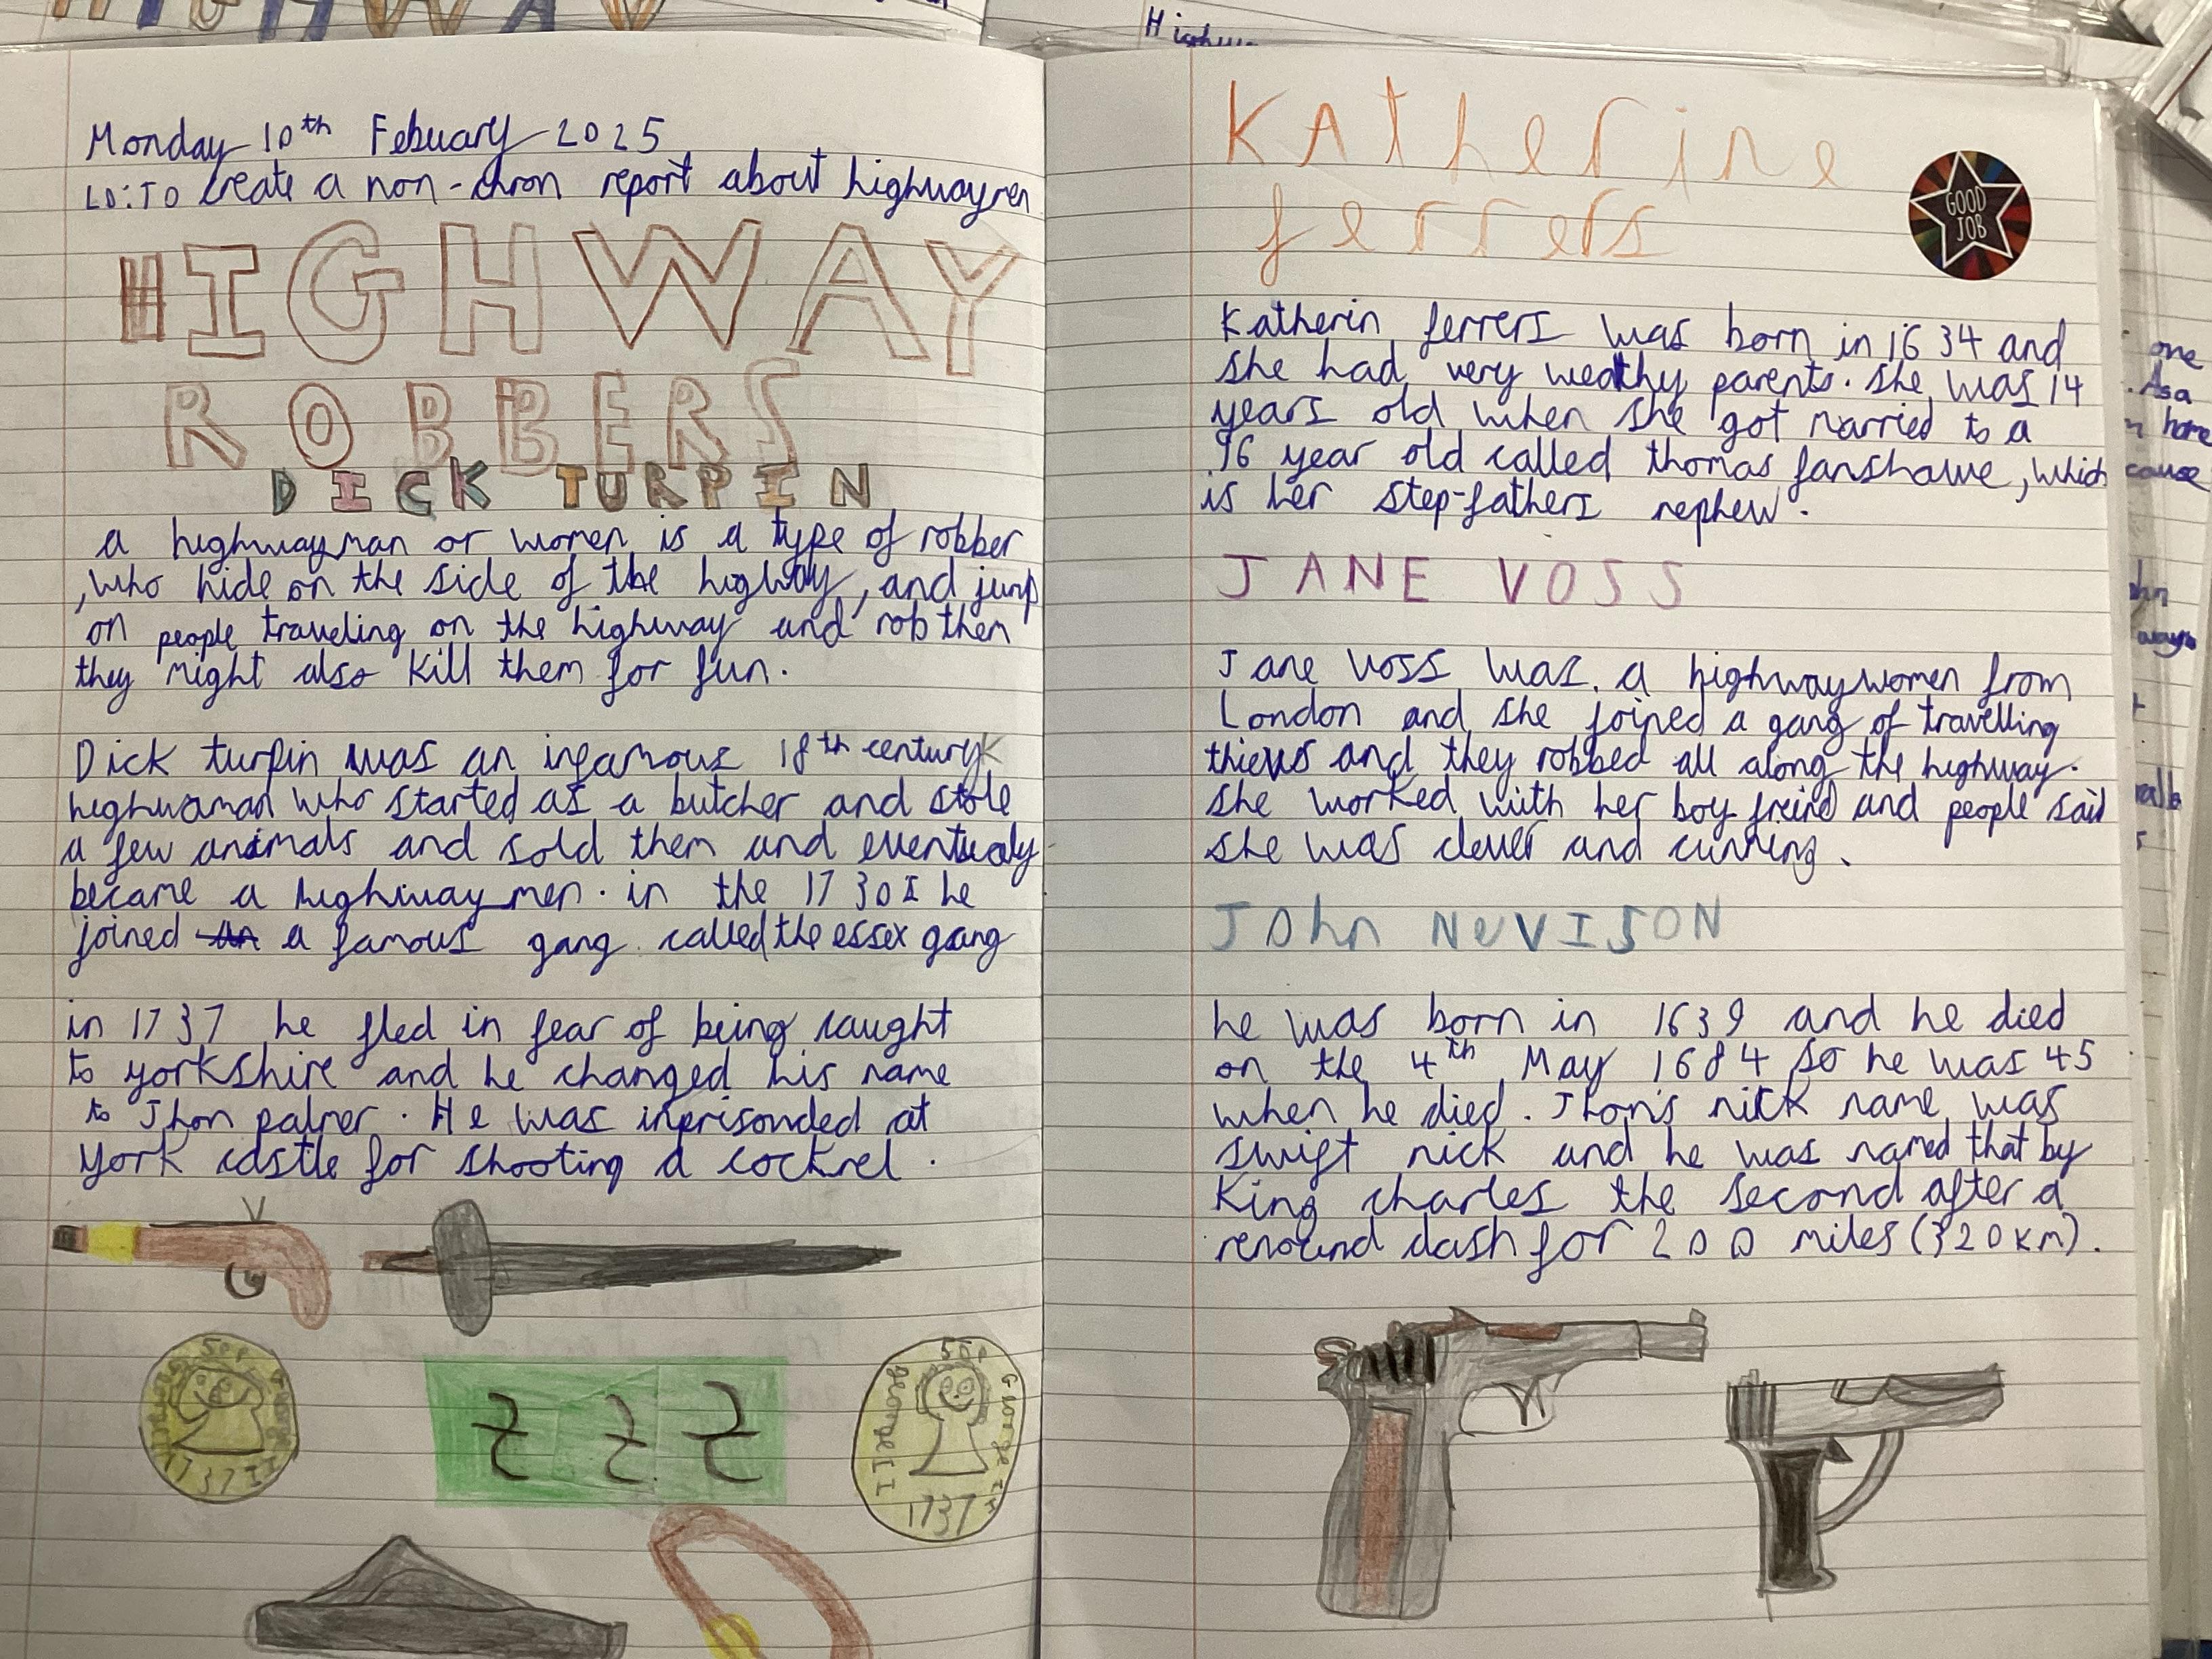 Monday 10th Febuary 2025
LO: TO create a non-chron report about highwaymen
HIGHWAY
ROBBERS
DICK TURPIN
a highwayman or women is a type of robber
, who hide on the side of the highway, and jump
on people traveling on the highway and rob them
they might also kill them for fun.
Dick turpin was an infamous 18th century
highwaman who started as a butcher and stole
a few animals and sold them and eventualy
became a highway men. in the 1730s he
joined a famous gang called the essex gang
in 1737 he fled in fear of being caught
to yorkshire and he changed his name
to Jhon palmer. He was inprisonded at
York castle for shooting a cockrel.
50p
1737
II
£ £ £
50p
George II
1737
Katherine
ferrers
GOOD
JOB
Katherin ferrers was born in 1634 and
she had very wealthy parents. she was 14
years old when she got married to a
16 year old called thomas fanshawe, which
is her step-fathers nephew.
JANE VOSS
Jane voss was a highwaywomen from
London and she joined a gang of travelling
thieves and they robbed all along the highway.
she worked with her boy freind and people said
she was clever and cunning.
John NeVISON
he was born in 1639 and he died
on the 4th May 1684 so he was 45
when he died. Jhon's nick name was
swift nick and he was named that by
King charles the second after a
renound dash for 200 miles (320km).
Highw
one
. As a
home
cause